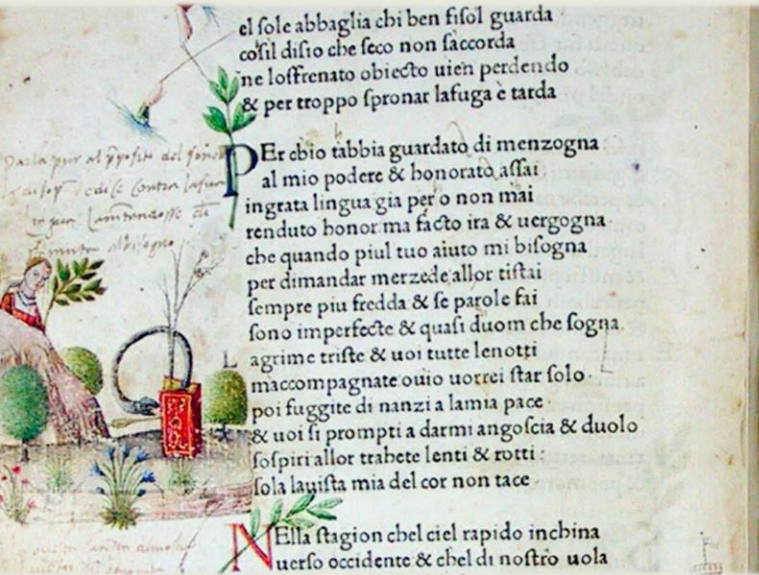 el sole abbaglia chi ben fisol guarda
cosil disio che seco non saccorda
ne losfrenato obiecto uien perdendo
& per troppo spronar lafuga è tarda
PEr chio tabbia guardato di menzogna
al mio podere & honorato assai
ingrata lingua gia pero non mai
renduto honor ma facto ira & uergogna
che quando piul tuo aiuto mi bisogna
per dimandar merzede allor tistai
sempre piu fredda & se parole fai
sono imperfecte & quasi duom che sogna
L agrime triste & uoi tutte lenotti
maccompagnate ouio uorrei star solo
poi fuggite di nanzi a lamia pace
& uoi si prompti a darmi angoscia & duolo
sospiri allor trahete lenti & rotti
sola lauista mia del cor non tace
NElla stagion chel ciel rapido inchina
uerso occidente & chel di nostro uola
Parla pur al del
contra